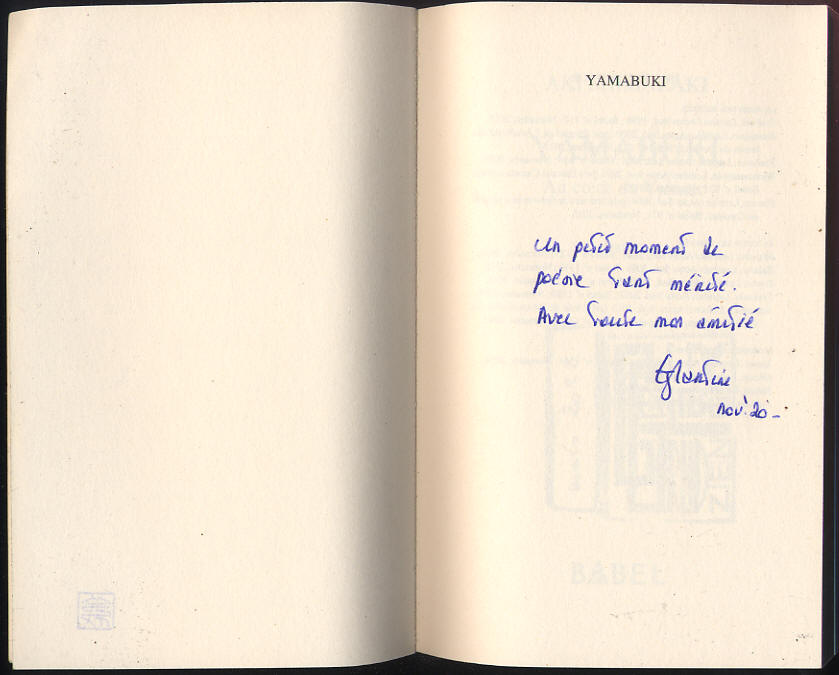 YAMABUKI
Un petit moment de
poésie tant mérité.
Avec toute mon amitié
Eglantine
nov' 20 -
BABEL